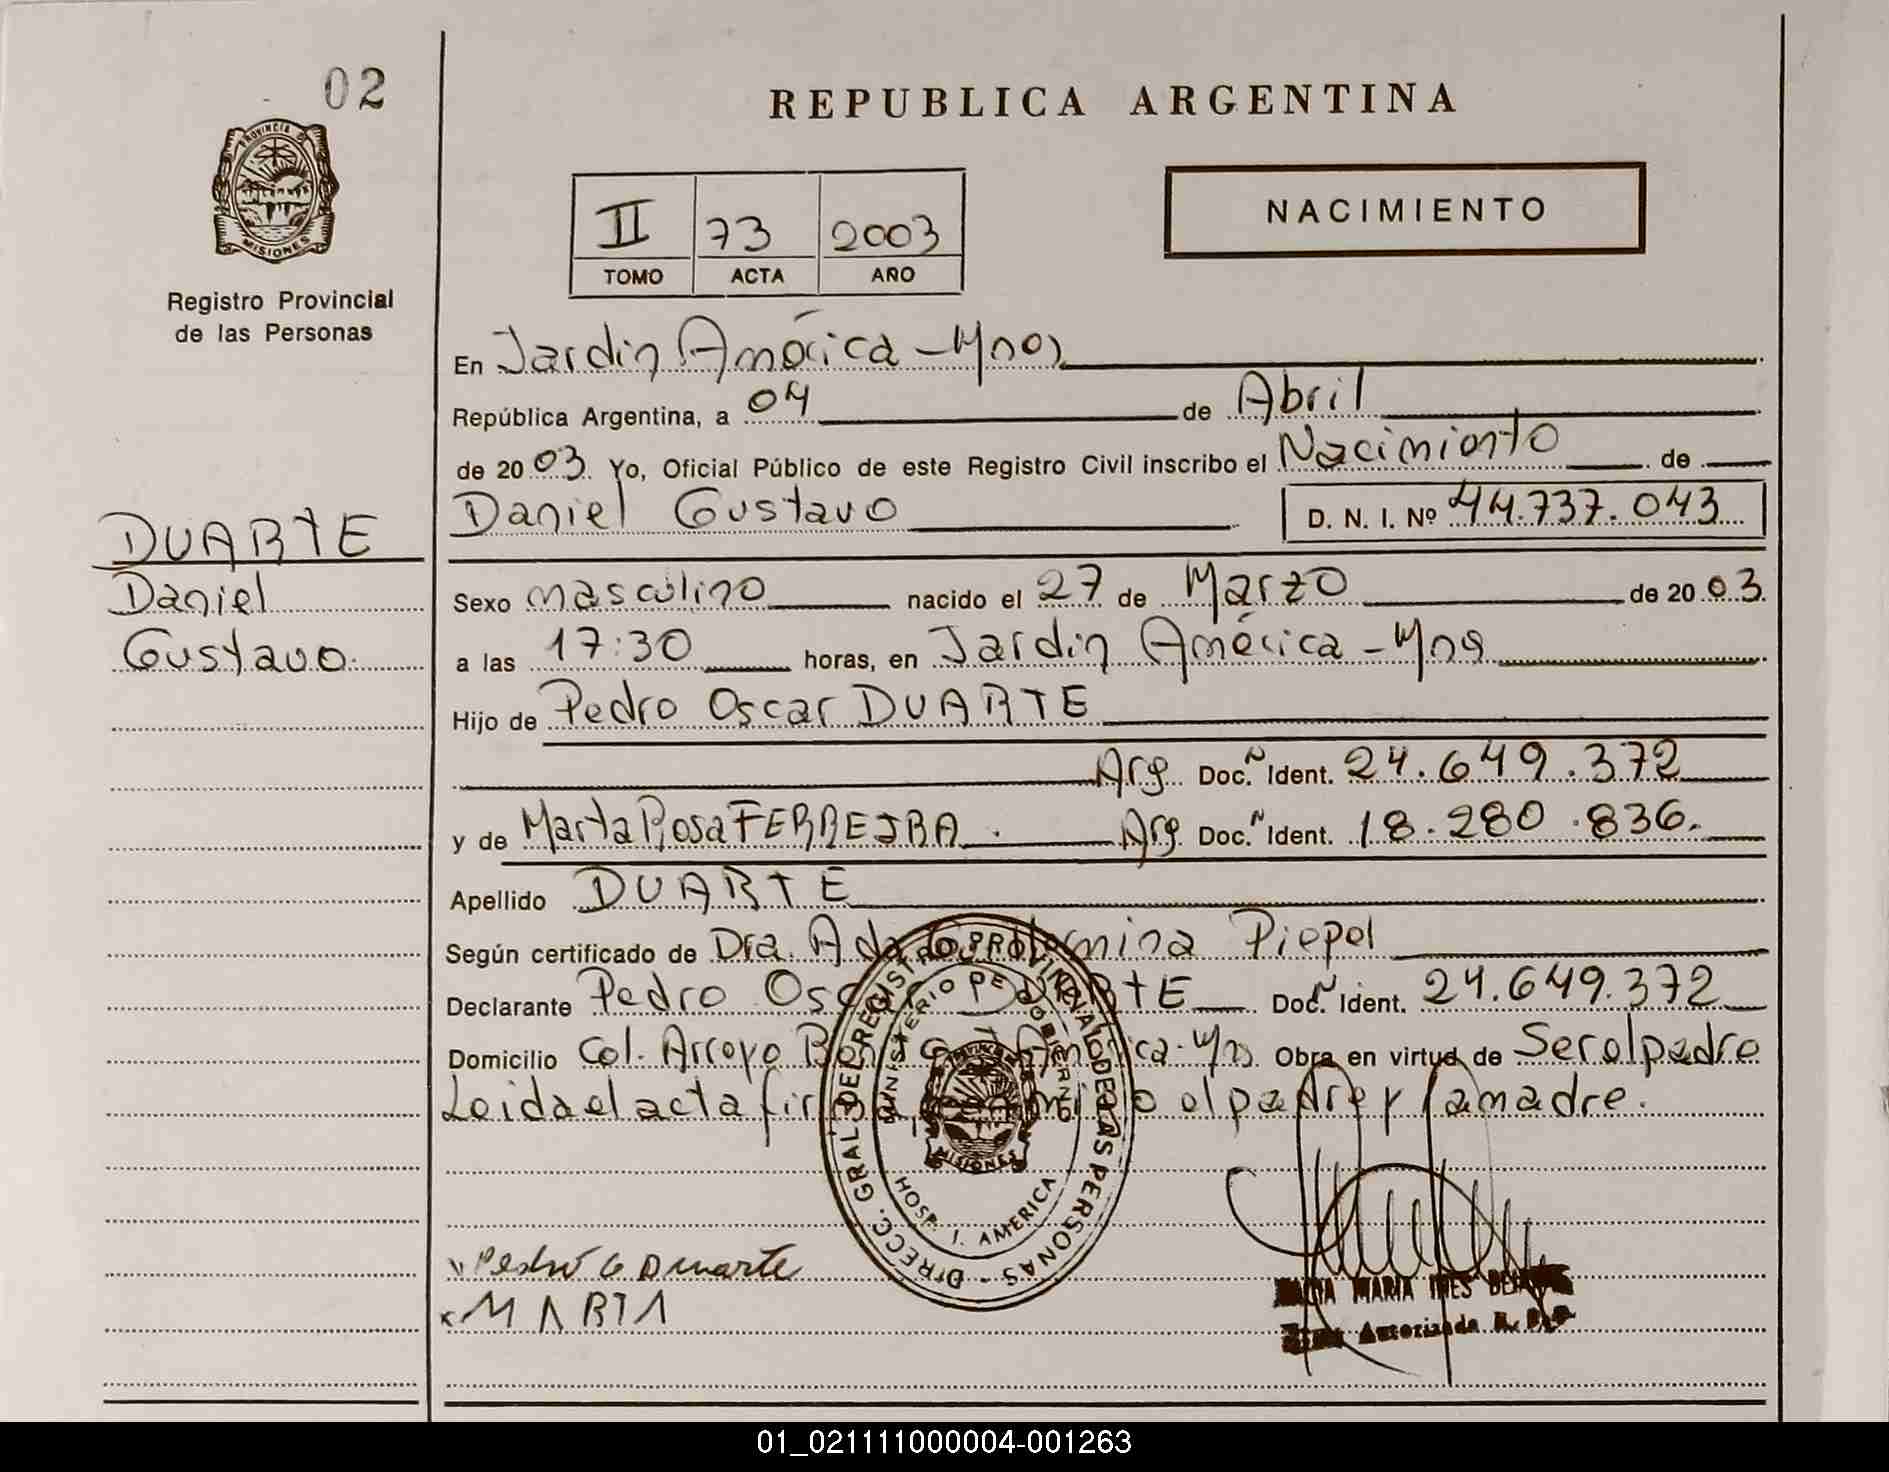 02
PROVINCIA DE
MISIONES
Registro Provincial
de las Personas
DUARTE
Daniel
Gustavo
REPUBLICA ARGENTINA
II 73 2003
TOMO ACTA AÑO
NACIMIENTO
En Jardín América - Mnes
República Argentina, a 04 de Abril
de 2003. Yo, Oficial Público de este Registro Civil inscribo el Nacimiento de
Daniel Gustavo D. N. I. Nº 44.737.043
Sexo masculino nacido el 27 de Marzo de 2003.
a las 17:30 horas, en Jardín América - Mnes
Hijo de Pedro Oscar DUARTE
Arg. Doc. Ident. 24.649.372
y de Marta Rosa FERREIRA. Arg. Doc. Ident. 18.280.836.
Apellido DUARTE
Según certificado de Dra. Ada Piepel
Declarante Pedro Oscar DUARTE Doc. Ident. 24.649.372
Domicilio Col. Arroyo América - Mns. Obra en virtud de Ser el padre
Leida el acta el padre y la madre.
DIRECC. GRAL. DEL REGISTRO PROVINCIAL DE LAS PERSONAS
MINISTERIO DE GOBIERNO
MISIONES
HOSP. J. AMERICA
Pedro O Duarte
x MARTA
MARIA INES
Autorizada R. P. P.
01_021111000004-001263